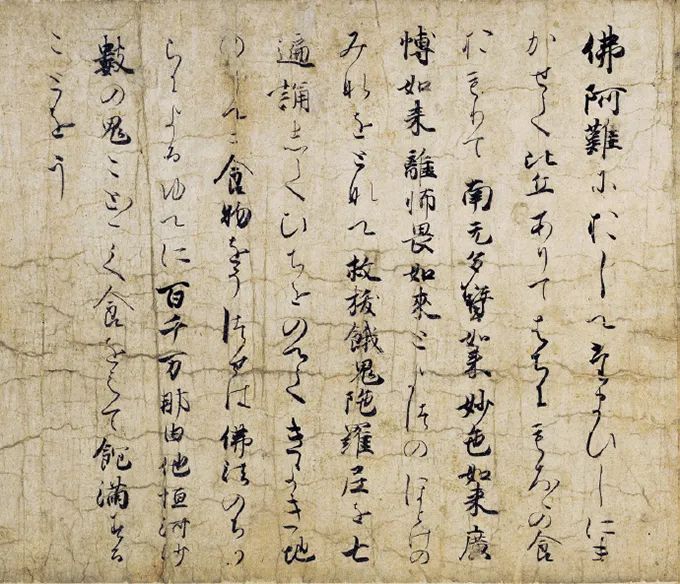 佛阿難におしへたまひしにま
かせて比丘ありてはちにもろ〱の食
おもりて南无多寳如来妙色如来廣
愽如来離怖畏如来との ほとけの
みなをとなへて救拔餓鬼陁羅尼を七
遍誦してひちをのへてきよき地
のうへに食物をう は佛法のちか
らによるゆへに百千万那由他恒河沙
數の鬼こと〱く食をえて飽滿する
ことをう